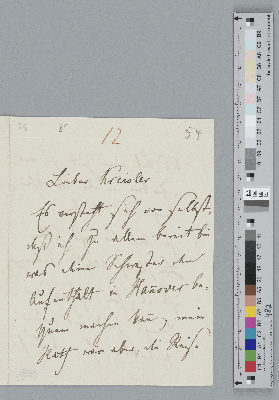 12
54
Lieber Kreisler
Es versteht sich von selbst,
daß ich zu allem bereit bin
was deine Schwester den
Aufenthalt in Hannover be-
quem machen kann; mein
Rath war aber, die Reise